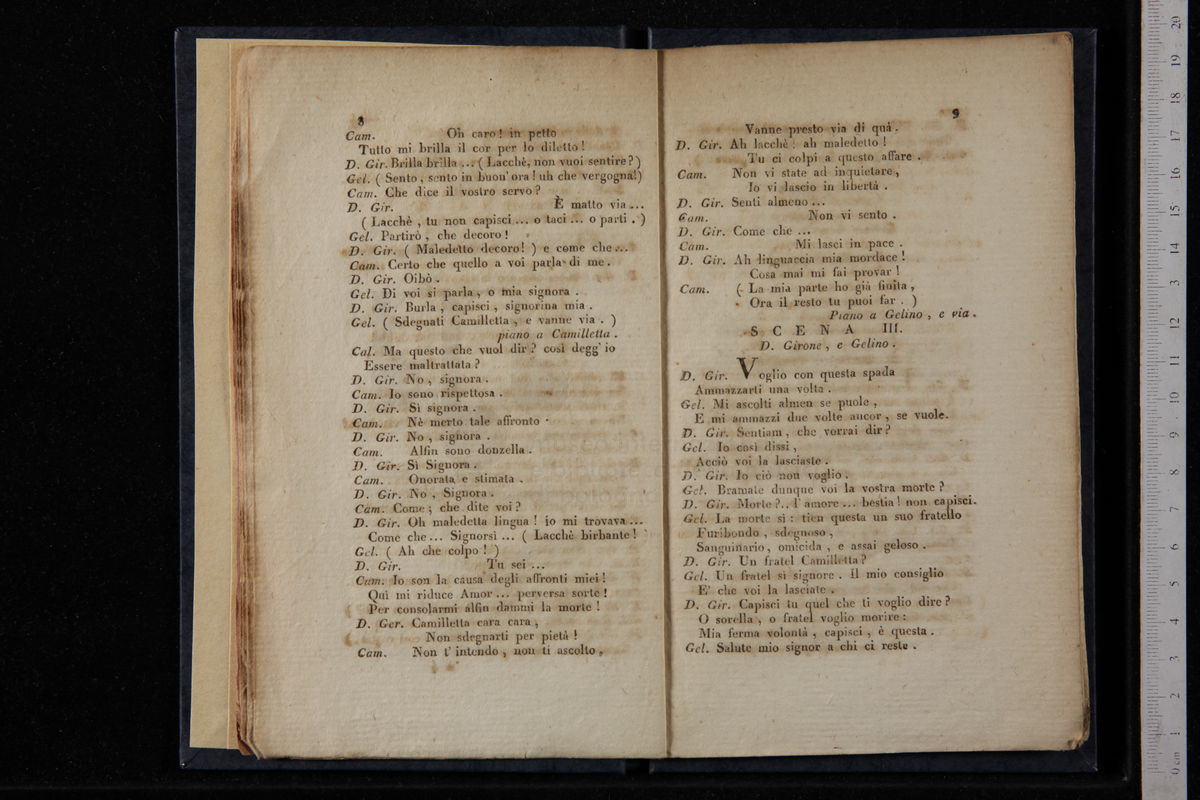 8
Cam. Oh caro! in petto
Tutto mi brilla il cor per lo diletto!
D. Gir. Brilla brilla ... ( Lacchè, non vuoi sentire? )
Gel. ( Sento, sento in buon' ora! uh che vergogna!)
Cam. Che dice il vostro servo?
D. Gir. È matto via ...
( Lacchè, tu non capisci ... o taci ... o parti. )
Gel. Partirò, che decoro!
D. Gir. ( Maledetto decoro! ) e come che ...
Cam. Certo che quello a voi parla di me.
D. Gir. Oibò.
Gel. Di voi si parla, o mia signora.
D. Gir. Burla, capisci, signorina mia.
Gel. ( Sdegnati Camilletta, e vanne via. )
piano a Camilletta.
Cal. Ma questo che vuol dir? così degg' io
Essere maltrattata?
D. Gir. No, signora.
Cam. Io sono rispettosa.
D. Gir. Sì signora.
Cam. Nè merto tale affronto.
D. Gir. No, signora.
Cam. Alfin sono donzella.
D. Gir. Sì Signora.
Cam. Onorata e stimata.
D. Gir. No, Signora.
Cam. Come; che dite voi?
D. Gir. Oh maledetta lingua! io mi trovava ...
Come che ... Signorsì ... ( Lacchè birbante!
Gel. ( Ah che colpo! )
D. Gir. Tu sei ...
Cam. Io son la causa degli affronti miei!
Quì mi riduce Amor ... perversa sorte!
Per consolarmi alfin dammi la morte!
D. Ger. Camilletta cara cara,
Non sdegnarti per pietà!
Cam. Non t' intendo, non ti ascolto,
9
Vanne presto via di quà.
D. Gir. Ah lacchè! ah maledetto!
Tu ci colpi a questo affare.
Cam. Non vi state ad inquietare,
Io vi lascio in libertà.
D. Gir. Senti almeno ...
Cam. Non vi sento.
D. Gir. Come che ...
Cam. Mi lasci in pace.
D. Gir. Ah linguaccia mia mordace!
Cosa mai mi fai provar!
Cam. ( La mia parte ho già finita,
Ora il resto tu puoi far. )
Piano a Gelino, e via.
SCENA III.
D. Girone, e Gelino.
D. Gir. Voglio con questa spada
Ammazzarti una volta.
Gel. Mi ascolti almen se puole,
E mi ammazzi due volte ancor, se vuole.
D. Gir. Sentiam, che vorrai dir?
Gel. Io così dissi,
Acciò voi la lasciaste.
D. Gir. Io ciò non voglio.
Gel. Bramate dunque voi la vostra morte?
D. Gir. Morte?.. l' amore ... bestia! non capisci.
Gel. La morte sì: tien questa un suo fratello
Furibondo, sdegnoso,
Sanguinario, omicida, e assai geloso.
D. Gir. Un fratel Camilletta?
Gel. Un fratel sì signore. Il mio consiglio
E' che voi la lasciate.
D. Gir. Capisci tu quel che ti voglio dire?
O sorella, o fratel voglio morire:
Mia ferma volontà, capisci, è questa.
Gel. Salute mio signor a chi ci reste.